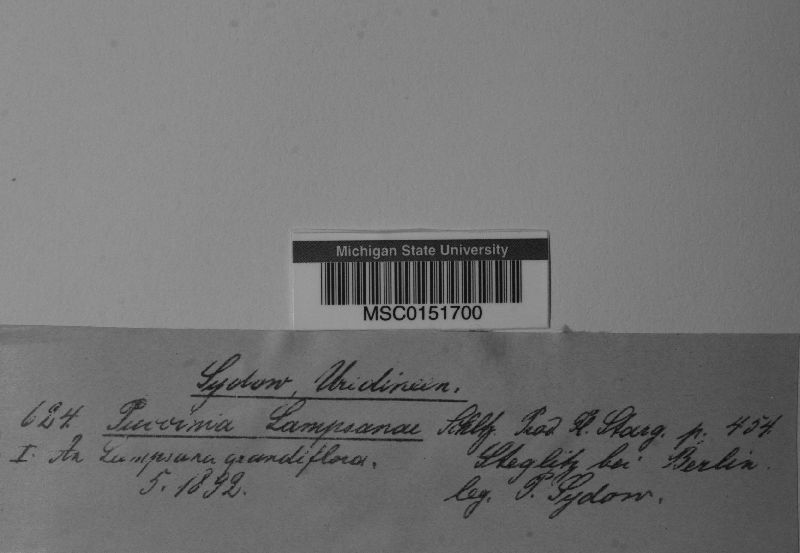 Michigan State University
MSC0151700
Sydow, Uredineen.
624. Puccinia Lampsanae Schltz Prod. Fl. Starg. p. 454.
I. An Lampsana grandiflora. Steglitz bei Berlin.
5. 1892. leg. P. Sydow.